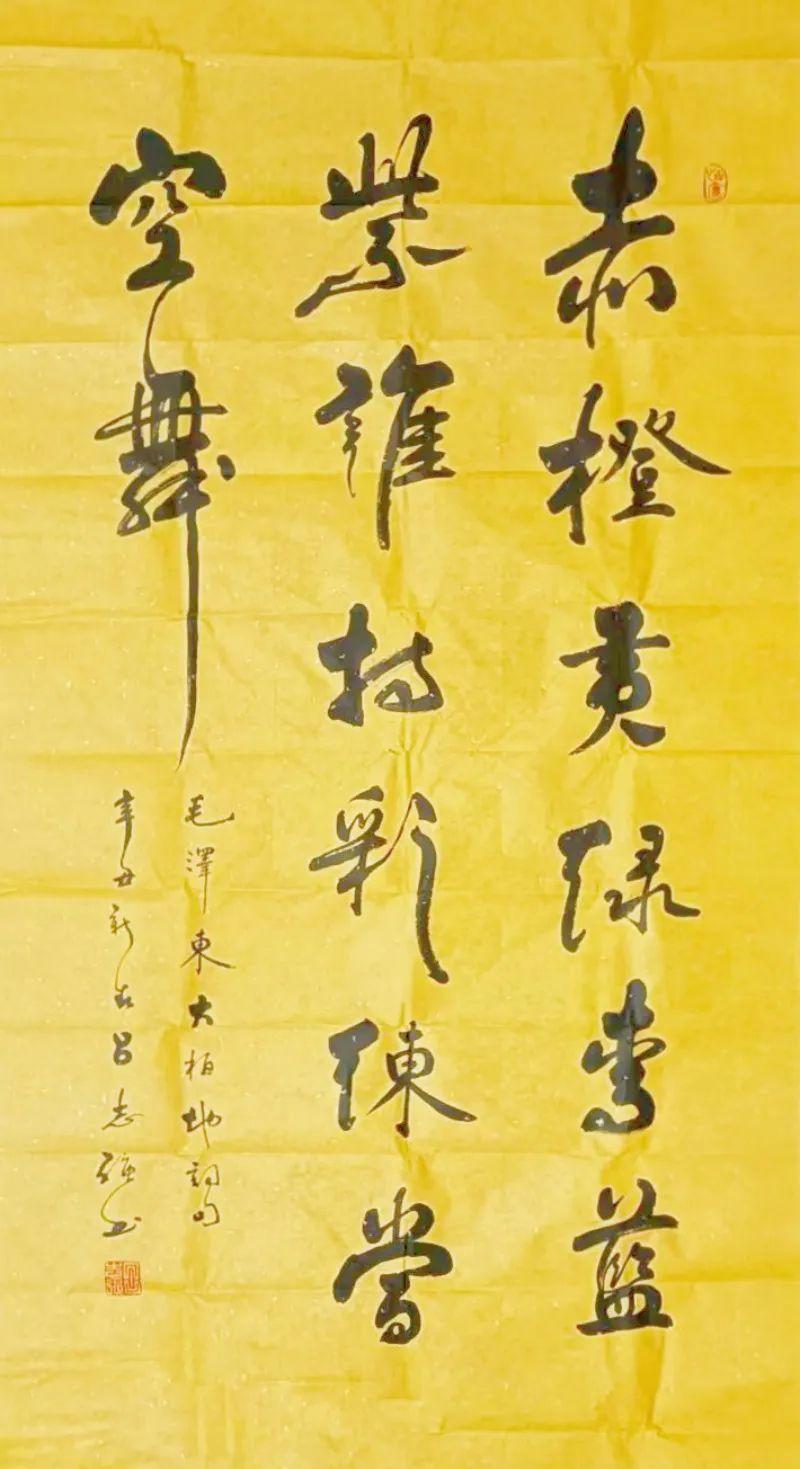 赤橙黄绿青藍
紫誰持彩練當
空舞
毛澤東大柏地詞句
辛丑新春吕志強书